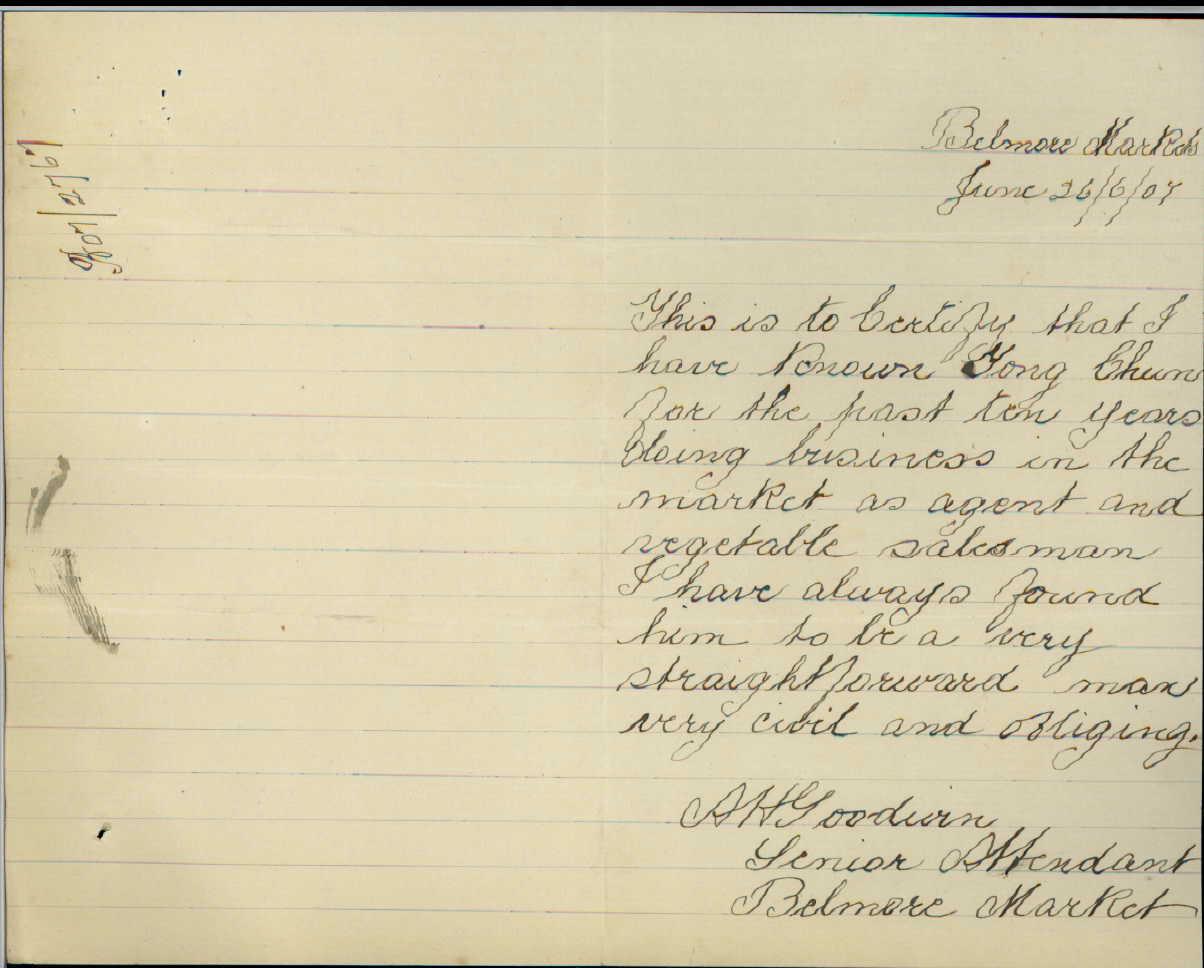 Belmore Markets
June 26/6/07
This is to Certify that I
have Known Gong Chun
for the past ten years
doing business in the
market as agent and
vegetable salesman
I have always found
him to be a very
straightforward man
very civil and obliging.
AHGoodwin
Senior Attendant
Belmore Market